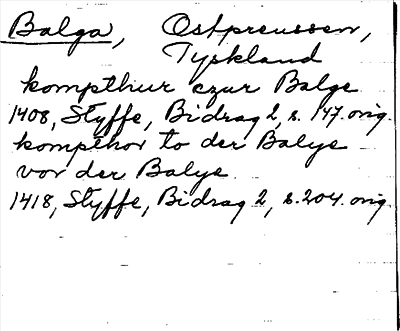 Balga, Ostpreussen,
Tyskland
kompthur czur Balge
1408, Styffe, Bidrag 2, s. 147. orig.
kompthor to der Balye
vor der Balye.
1418, Styffe, Bidrag 2, s. 204. orig.